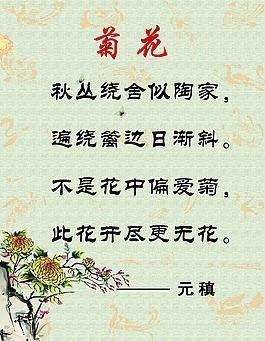 菊花
秋丛绕舍似陶家，
遍绕篱边日渐斜。
不是花中偏爱菊，
此花开尽更无花。
——元稹